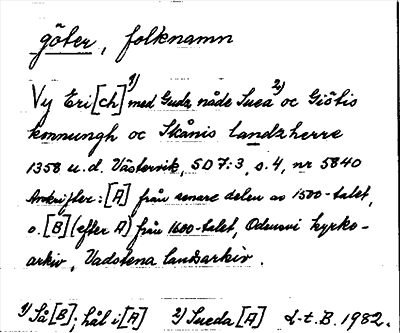 göter, folknamn
Vy Eri[ch]¹⁾ med Gudz nåde Suea²⁾ oc Giötis
konnungh oc Skånis landzherre
1358 u.d. Västervik, SD 7:3, s. 4, nr 5840
Avskrifter: [A] från senare delen av 1500-talet,
o. [B] (efter A) från 1600-talet, Odensvi kyrko-
arkiv, Vadstena landsarkiv.
1) Så [B]; hål i [A] 2) Sueda [A] L-t. B. 1982.